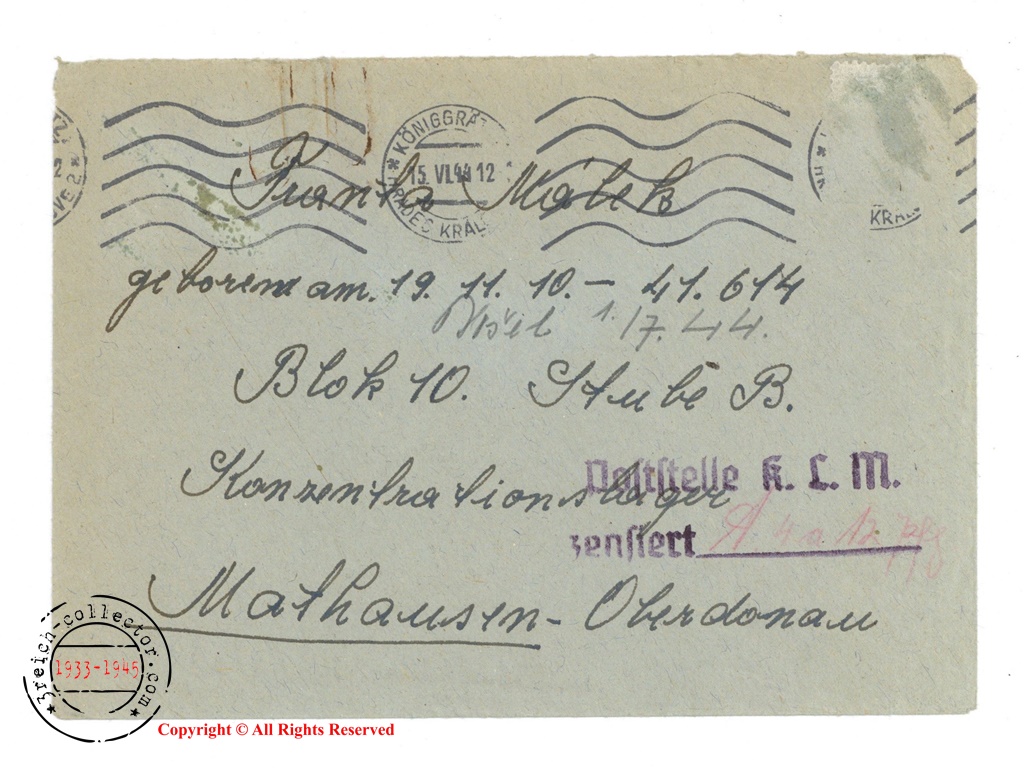 KÖNIGGRÄ
15. VI. 44 12
HRADEC KRÁL
KRÁL
Franta Málek
geborene am. 19. 11. 10. – 41.614
1. /7. 44.
Blok 10. Stube B.
Konzentrationslager
Poststelle K. L. M.
zensiert
Mathausen - Oberdonau
3reich-collector.com
1933-1945
Copyright © All Rights Reserved